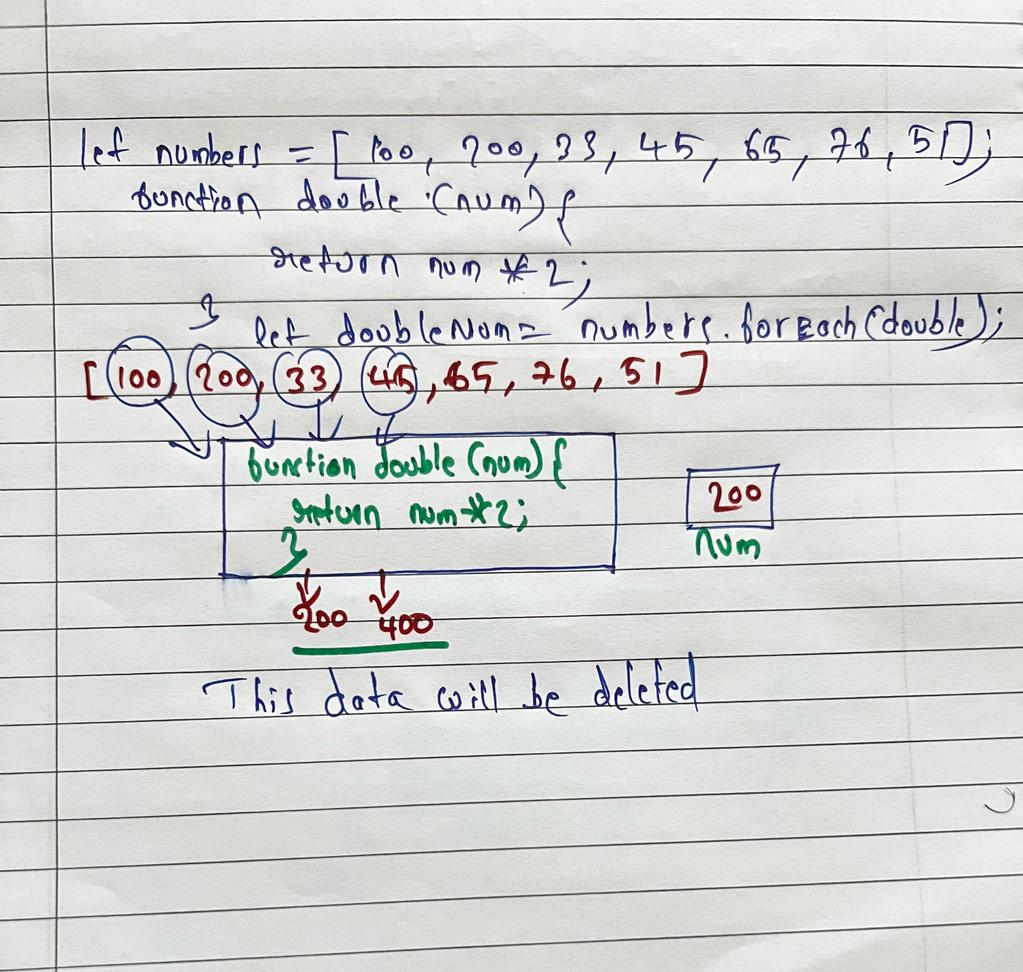 let numbers = [ 100, 200, 33, 45, 65, 76, 51];
function double (num) {
return num * 2;
}
let doubleNum = numbers.forEach(double);
[100, 200, 33, 45, 65, 76, 51]
function double (num) {
return num * 2;
}
200
num
200 400
This data will be deleted